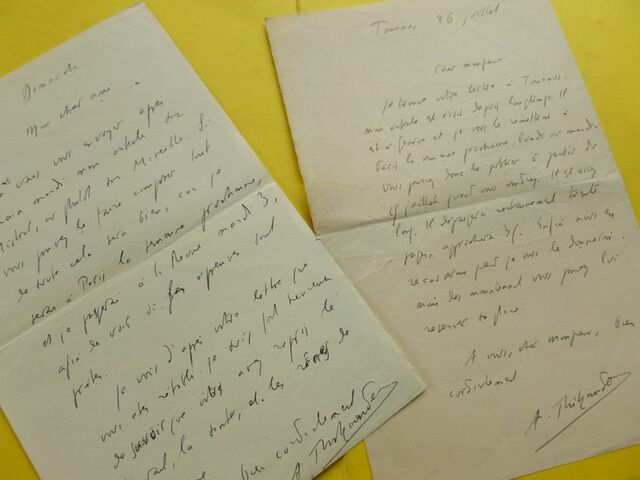 Dimanche
Mon cher ami
vais vous envoyer après
mardi mon article sur
Mistral, ou plutôt sur Mireille. Si
vous pouvez le faire composer tout
de suite cela sera bien, car je
serai à Paris la semaine prochaine,
et je passerai à la Revue mardi 3,
afin de voir si les épreuves sont
prêtes.
Je vois, d'après votre lettre que
vous êtes rétabli. Je suis fort heureux
de savoir que vous avez repris le
travail, la santé, et les rênes de
bien cordialement
A. Thibaudet
Tournus 26 juillet
Cher monsieur
Je trouve votre lettre à Tournus.
Mon article est écrit depuis longtemps. Il
est à Paris et je vous le remettrai à
Paris la semaine prochaine, lundi ou mardi.
Vous pouvez donc le publier à partir du
15 juillet quand vous voudrez. Il est assez
long. Il dépassera certainement trente
pages, approchera 35. Enfin nous en
recauserons quand je vous le donnerai.
Mais dès maintenant vous pouvez lui
réserver sa place.
A vous, cher monsieur, bien
cordialement
A. Thibaudet